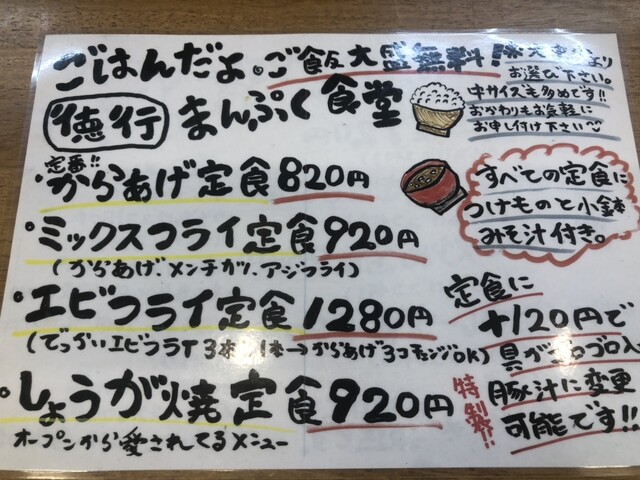 ごはんだよ。ご飯大盛無料!
より
お選び下さい。
中サイズも多めです!!
おかわりもお気軽に
お申し付け下さい
徳行 まんぷく食堂
定番!!
・からあげ定食 820円
すべての定食に
つけものと小鉢
みそ汁付き。
・ミックスフライ定食 920円
(からあげ、メンチカツ、アジフライ)
・エビフライ定食 1280円
(でっかいエビフライ3本 1本→からあげ3コチェンジOK)
・しょうが焼定食 920円
オープンから愛されてるメニュー
定食に
+120円で
具がゴロゴロ入
特製!!
豚汁に変更
可能です!!